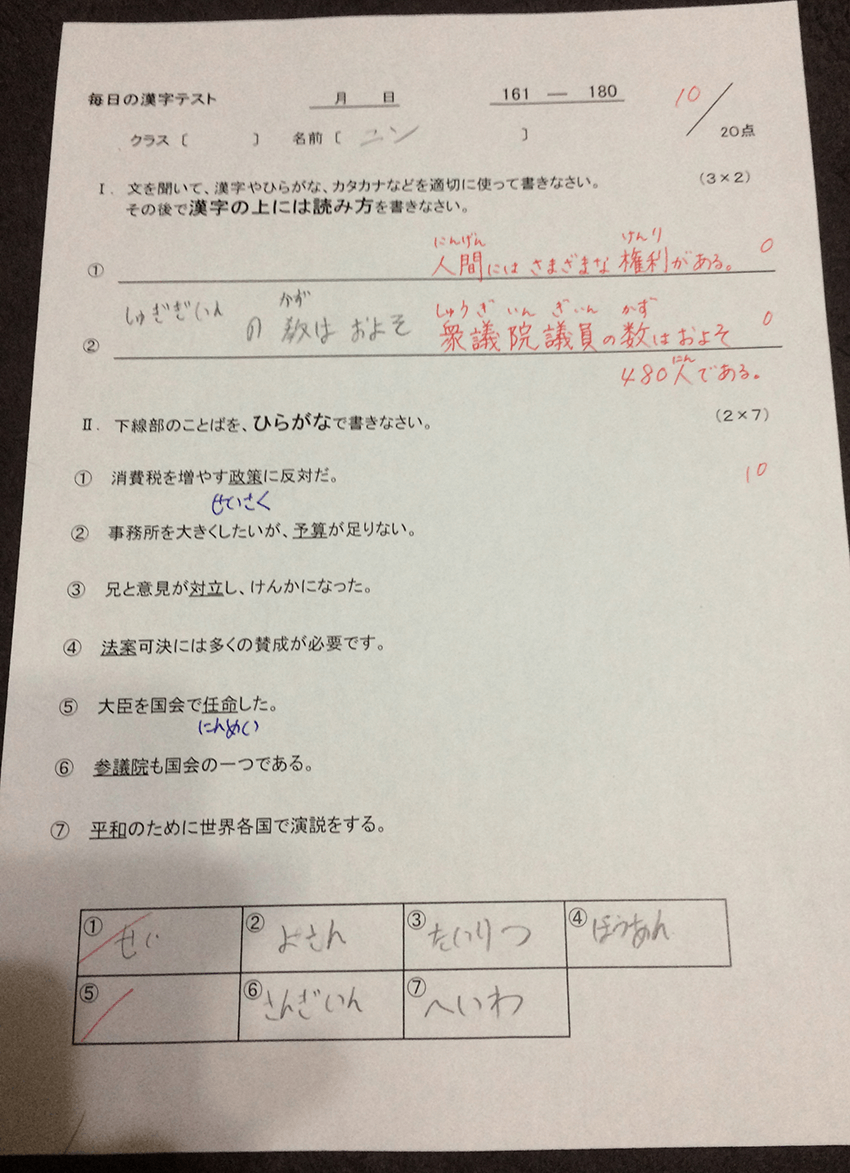 毎日の漢字テスト 月 日 161 — 180 10/20点
クラス〔 〕 名前〔 ニン 〕
Ⅰ. 文を聞いて、漢字やひらがな、カタカナなどを適切に使って書きなさい。 (3×2)
その後で漢字の上には読み方を書きなさい。
にんげん けんり
① 人間にはさまざまな権利がある。 0
しゅぎぎいん かず しゅうぎいんぎいん かず
② の数はおよそ 衆議院議員の数はおよそ 0
にん
480人である。
Ⅱ. 下線部のことばを、ひらがなで書きなさい。 (2×7)
① 消費税を増やす政策に反対だ。 10
せいさく
② 事務所を大きくしたいが、予算が足りない。
③ 兄と意見が対立し、けんかになった。
④ 法案可決には多くの賛成が必要です。
⑤ 大臣を国会で任命した。
にんめい
⑥ 参議院も国会の一つである。
⑦ 平和のために世界各国で演説をする。
① せい ② よさん ③ たいりつ ④ ほうあん
⑤ ⑥ さんぎいん ⑦ へいわ